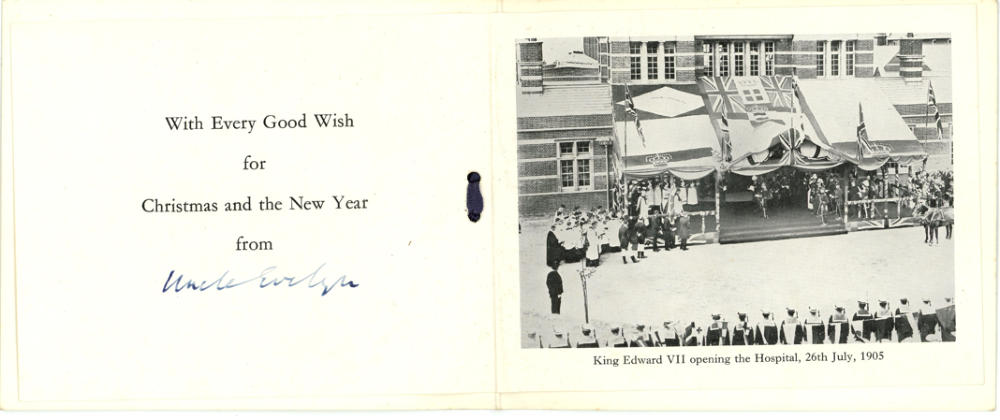 With Every Good Wish
for
Christmas and the New Year
from
Uncle Evelyn
King Edward VII opening the Hospital, 26th July, 1905